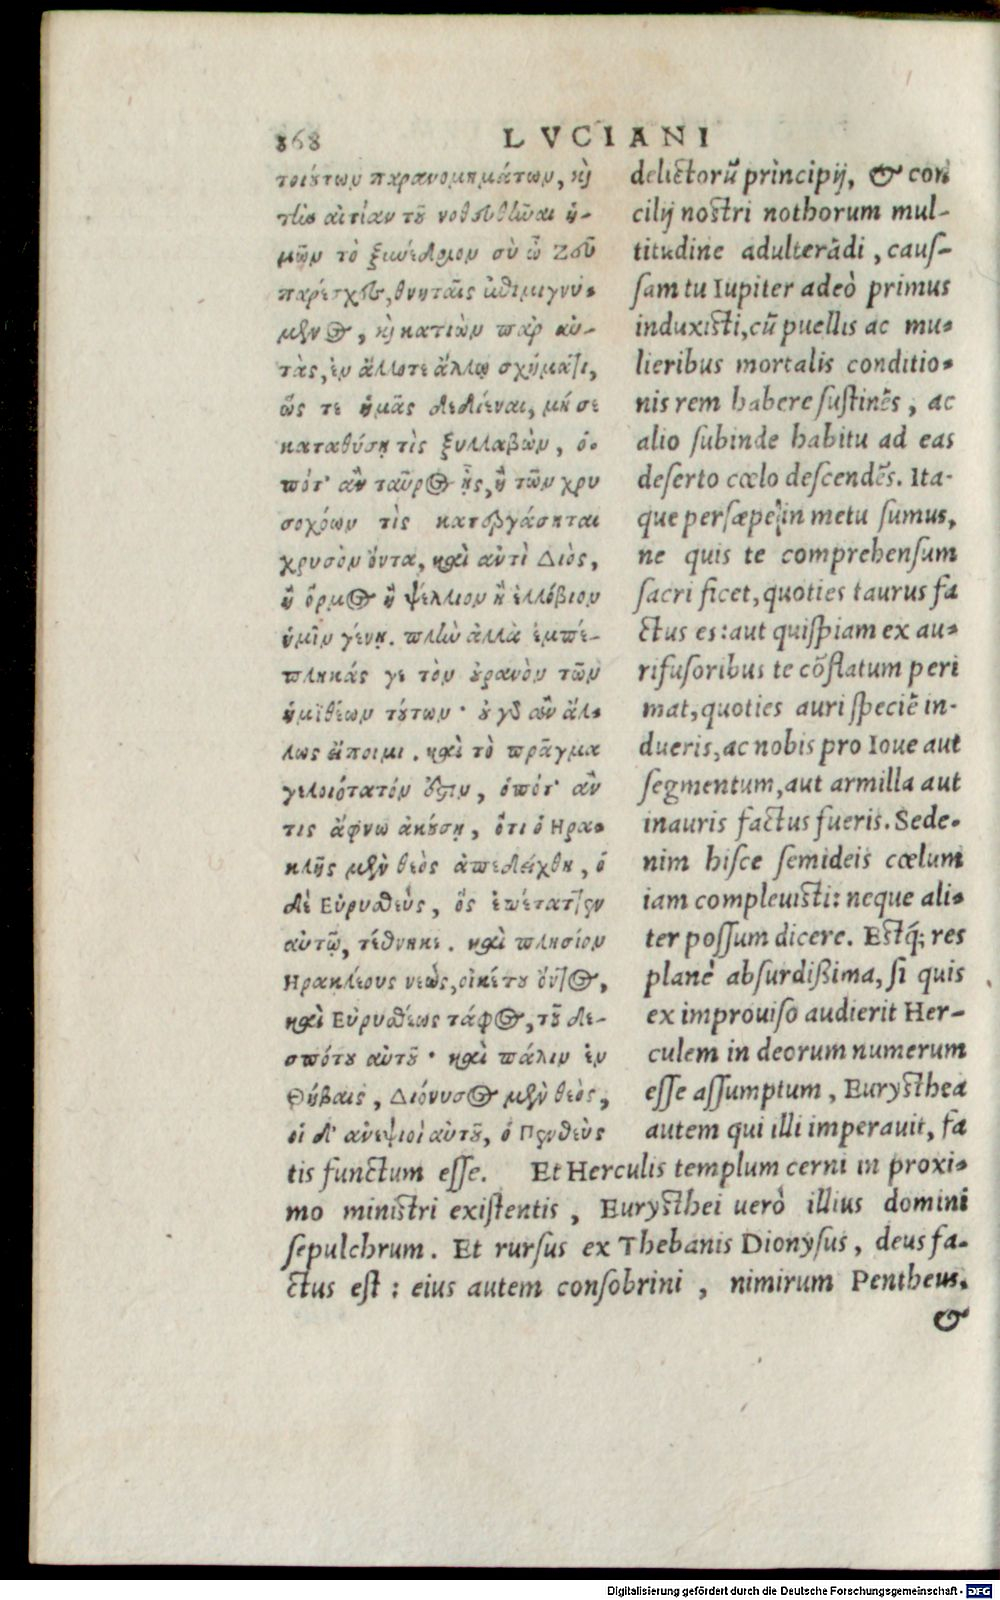 868 LVCIANI
τοιύτων παρανομημάτων, κὶ
τὴν αἰτίαν τῦ νοθευθῆναι ἡ-
μῶν τὸ ξυνέδριον σὺ ὦ Ζεῦ
παρέσχες, θνηταῖς ἐπιμιγνύ-
μενος, κὶ κατιὼν παρ αὐ-
τὰς, ἐν ἄλλοτε ἄλλῳ σχήματι,
ὥς τε ἡμᾶς δεδιέναι, μή σε
καταθύσῃ τὶς ξυλλαβὼν, ὁ-
πότ' ἂν ταῦρος ᾖς, ἢ τῶν χρυ
σοχόων τὶς κατεργάσηται
χρυσὸν ὄντα, καὶ αὐτὶ Διὸς,
ἢ ὅρμος ἢ ψέλλιον ἢ ἐλλόβιον
ἡμῖν γένῃ. πλὴν ἀλλὰ ἐμπέ-
πληκάς γε τὸν ὐρανὸν τῶν
ἡμιθέων τύτων· ὐ γὰρ ἂν ἄλ-
λως εἴποιμι. καὶ τὸ πρᾶγμα
γελοιότατόν ἐστιν, ὁπότ' ἂν
τις ἄφνω ἀκύσῃ, ὅτι ὁ Ηρα-
κλῆς μὲν θεὸς ἀπεδείχθη, ὁ
δὲ Εὐρυσθεὺς, ὃς ἐπέταττεν
αὐτῷ, τέθνηκε. καὶ πλησίον
Ηρακλέους νεὼς, οἰκέτυ ὄντος,
καὶ Εὐρυσθέως τάφος, τῦ δε-
σπότυ αὐτῦ· καὶ πάλιν ἐν
Θήβαις, Διόνυσος μὲν θεὸς,
οἱ δ' ἀνεψιοὶ αὐτῦ, ὁ Πενθεὺς
delictorũ principij, & con
cilij nostri nothorum mul-
titudine adulterãdi, caus-
sam tu Iupiter adeò primus
induxisti, cũ puellis ac mu-
lieribus mortalis conditio-
nis rem habere sustinẽs, ac
alio subinde habitu ad eas
deserto cœlo descendẽs. Ita-
que persæpe in metu sumus,
ne quis te comprehensum
sacri ficet, quoties taurus fa
ctus es: aut quispiam ex au-
rifusoribus te cõflatum peri
mat, quoties auri speciẽ in-
dueris, ac nobis pro Ioue aut
segmentum, aut armilla aut
inauris factus fueris. Sede-
nim hisce semideis cœlum
iam compleuisti: neque ali-
ter possum dicere. Estq́; res
planè absurdißima, si quis
ex improuiso audierit Her-
culem in deorum numerum
esse assumptum, Eurysthea
autem qui illi imperauit, fa
tis functum esse. Et Herculis templum cerni in proxi-
mo ministri existentis, Eurysthei uerò illius domini
sepulchrum. Et rursus ex Thebanis Dionysus, deus fa-
ctus est: eius autem consobrini, nimirum Pentheus,
&
Digitalisierung gefördert durch die Deutsche Forschungsgemeinschaft - DFG